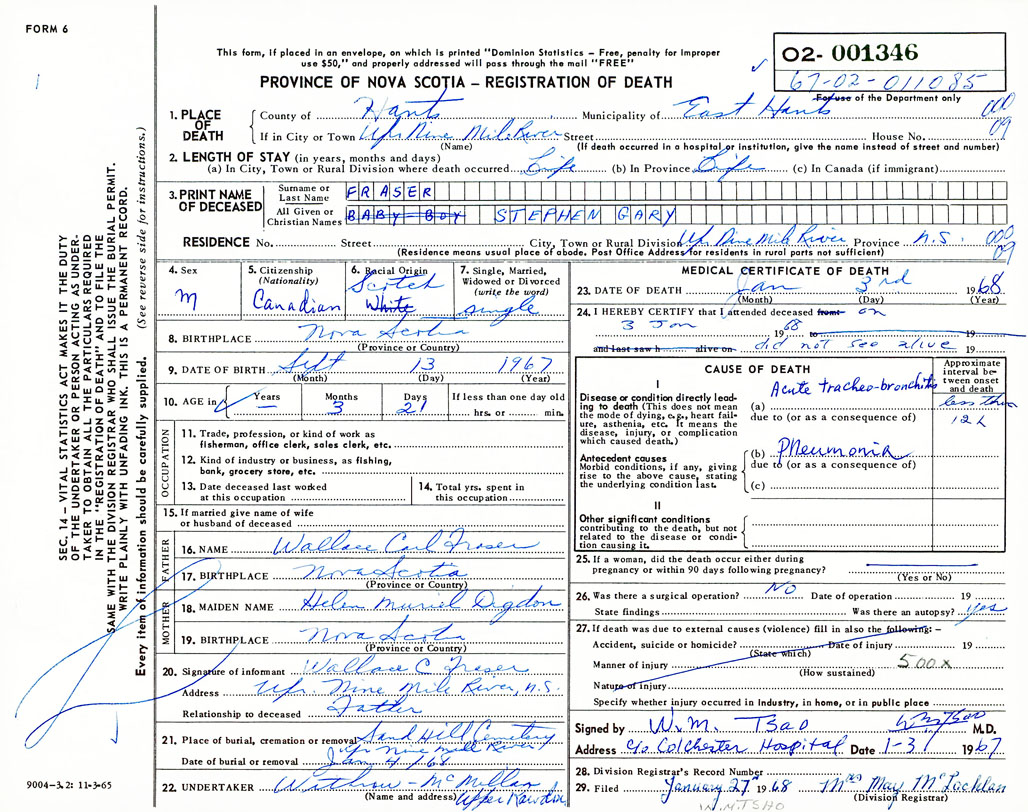 FORM 6
This form, if placed in an envelope, on which is printed "Dominion Statistics – Free, penalty for improper
use $50," and properly addressed will pass through the mail "FREE"
PROVINCE OF NOVA SCOTIA – REGISTRATION OF DEATH
02- 001346
67-02-011085
For use of the Department only
SEC. 14 – VITAL STATISTICS ACT MAKES IT THE DUTY
OF THE UNDERTAKER OR PERSON ACTING AS UNDER-
TAKER TO OBTAIN ALL THE PARTICULARS REQUIRED
IN THE "REGISTRATION OF DEATH" AND TO FILE THE
SAME WITH THE DIVISION REGISTRAR WHO SHALL ISSUE THE BURIAL PERMIT.
WRITE PLAINLY WITH UNFADING INK. THIS IS A PERMANENT RECORD.
Every item of information should be carefully supplied. (See reverse side for instructions.)
1. PLACE OF DEATH
County of Hants Municipality of East Hants 000
If in City or Town Upr Nine Mile River Street House No. 09
(Name) (If death occurred in a hospital or institution, give the name instead of street and number)
2. LENGTH OF STAY (in years, months and days)
(a) In City, Town or Rural Division where death occurred Life (b) In Province Life (c) In Canada (if immigrant)
3. PRINT NAME OF DECEASED
Surname or Last Name FRASER
All Given or Christian Names BABY BOY STEPHEN GARY
RESIDENCE No. Street City, Town or Rural Division Upr. Nine Mile River Province N.S. 000 09
(Residence means usual place of abode. Post Office Address for residents in rural parts not sufficient)
4. Sex
M
5. Citizenship
(Nationality)
Canadian
6. Racial Origin
Scotch
White
7. Single, Married,
Widowed or Divorced
(write the word)
single
8. BIRTHPLACE Nova Scotia
(Province or Country)
9. DATE OF BIRTH Sept 13 1967
(Month) (Day) (Year)
10. AGE in Years – Months 3 Days 21 If less than one day old
hrs. or min.
OCCUPATION
11. Trade, profession, or kind of work as
fisherman, office clerk, sales clerk, etc.
12. Kind of industry or business, as fishing,
bank, grocery store, etc.
13. Date deceased last worked
at this occupation
14. Total yrs. spent in
this occupation
15. If married give name of wife
or husband of deceased
FATHER
16. NAME Wallace Carl Fraser
17. BIRTHPLACE Nova Scotia
(Province or Country)
MOTHER
18. MAIDEN NAME Helen Muriel Digdon
19. BIRTHPLACE Nova Scotia
(Province or Country)
20. Signature of informant Wallace C Fraser
Address Upr. Nine Mile River, N.S.
Relationship to deceased Father
21. Place of burial, cremation or removal Sand Hill Cemetery
Upr Nine Mile River
Date of burial or removal Jan 4/68
22. UNDERTAKER Withrow - McMillan
(Name and address) Upper Rawdon
9004-3.2: 11-3-65
MEDICAL CERTIFICATE OF DEATH
23. DATE OF DEATH Jan 3rd 1968
(Month) (Day) (Year)
24. I HEREBY CERTIFY that I attended deceased from on
3 Jan 68 to 19
and last saw h alive on did not see alive 19
CAUSE OF DEATH
Approximate
interval be-
tween onset
and death
I
Disease or condition directly lead-
ing to death (This does not mean
the mode of dying, e.g., heart fail-
ure, asthenia, etc. It means the
disease, injury, or complication
which caused death.)
(a) Acute tracheo-bronchitis less than
due to (or as a consequence of) 12 h
Antecedent causes
Morbid conditions, if any, giving
rise to the above cause, stating
the underlying condition last.
(b) Pneumonia
due to (or as a consequence of)
(c)
II
Other significant conditions
contributing to the death, but not
related to the disease or condi-
tion causing it.
25. If a woman, did the death occur either during
pregnancy or within 90 days following pregnancy?
(Yes or No)
26. Was there a surgical operation? NO Date of operation 19
State findings Was there an autopsy? yes
27. If death was due to external causes (violence) fill in also the following: –
Accident, suicide or homicide? Date of injury 19
(State which)
Manner of injury 500x
(How sustained)
Nature of injury
Specify whether injury occurred in Industry, in home, or in public place
Signed by W. M. Tsao WM Tsao M.D.
Address c/o Colchester Hospital Date 1-31 1967
28. Division Registrar's Record Number
29. Filed January 27 1968 Mrs May McLachlan
(Division Registrar)
W.M.TSHO